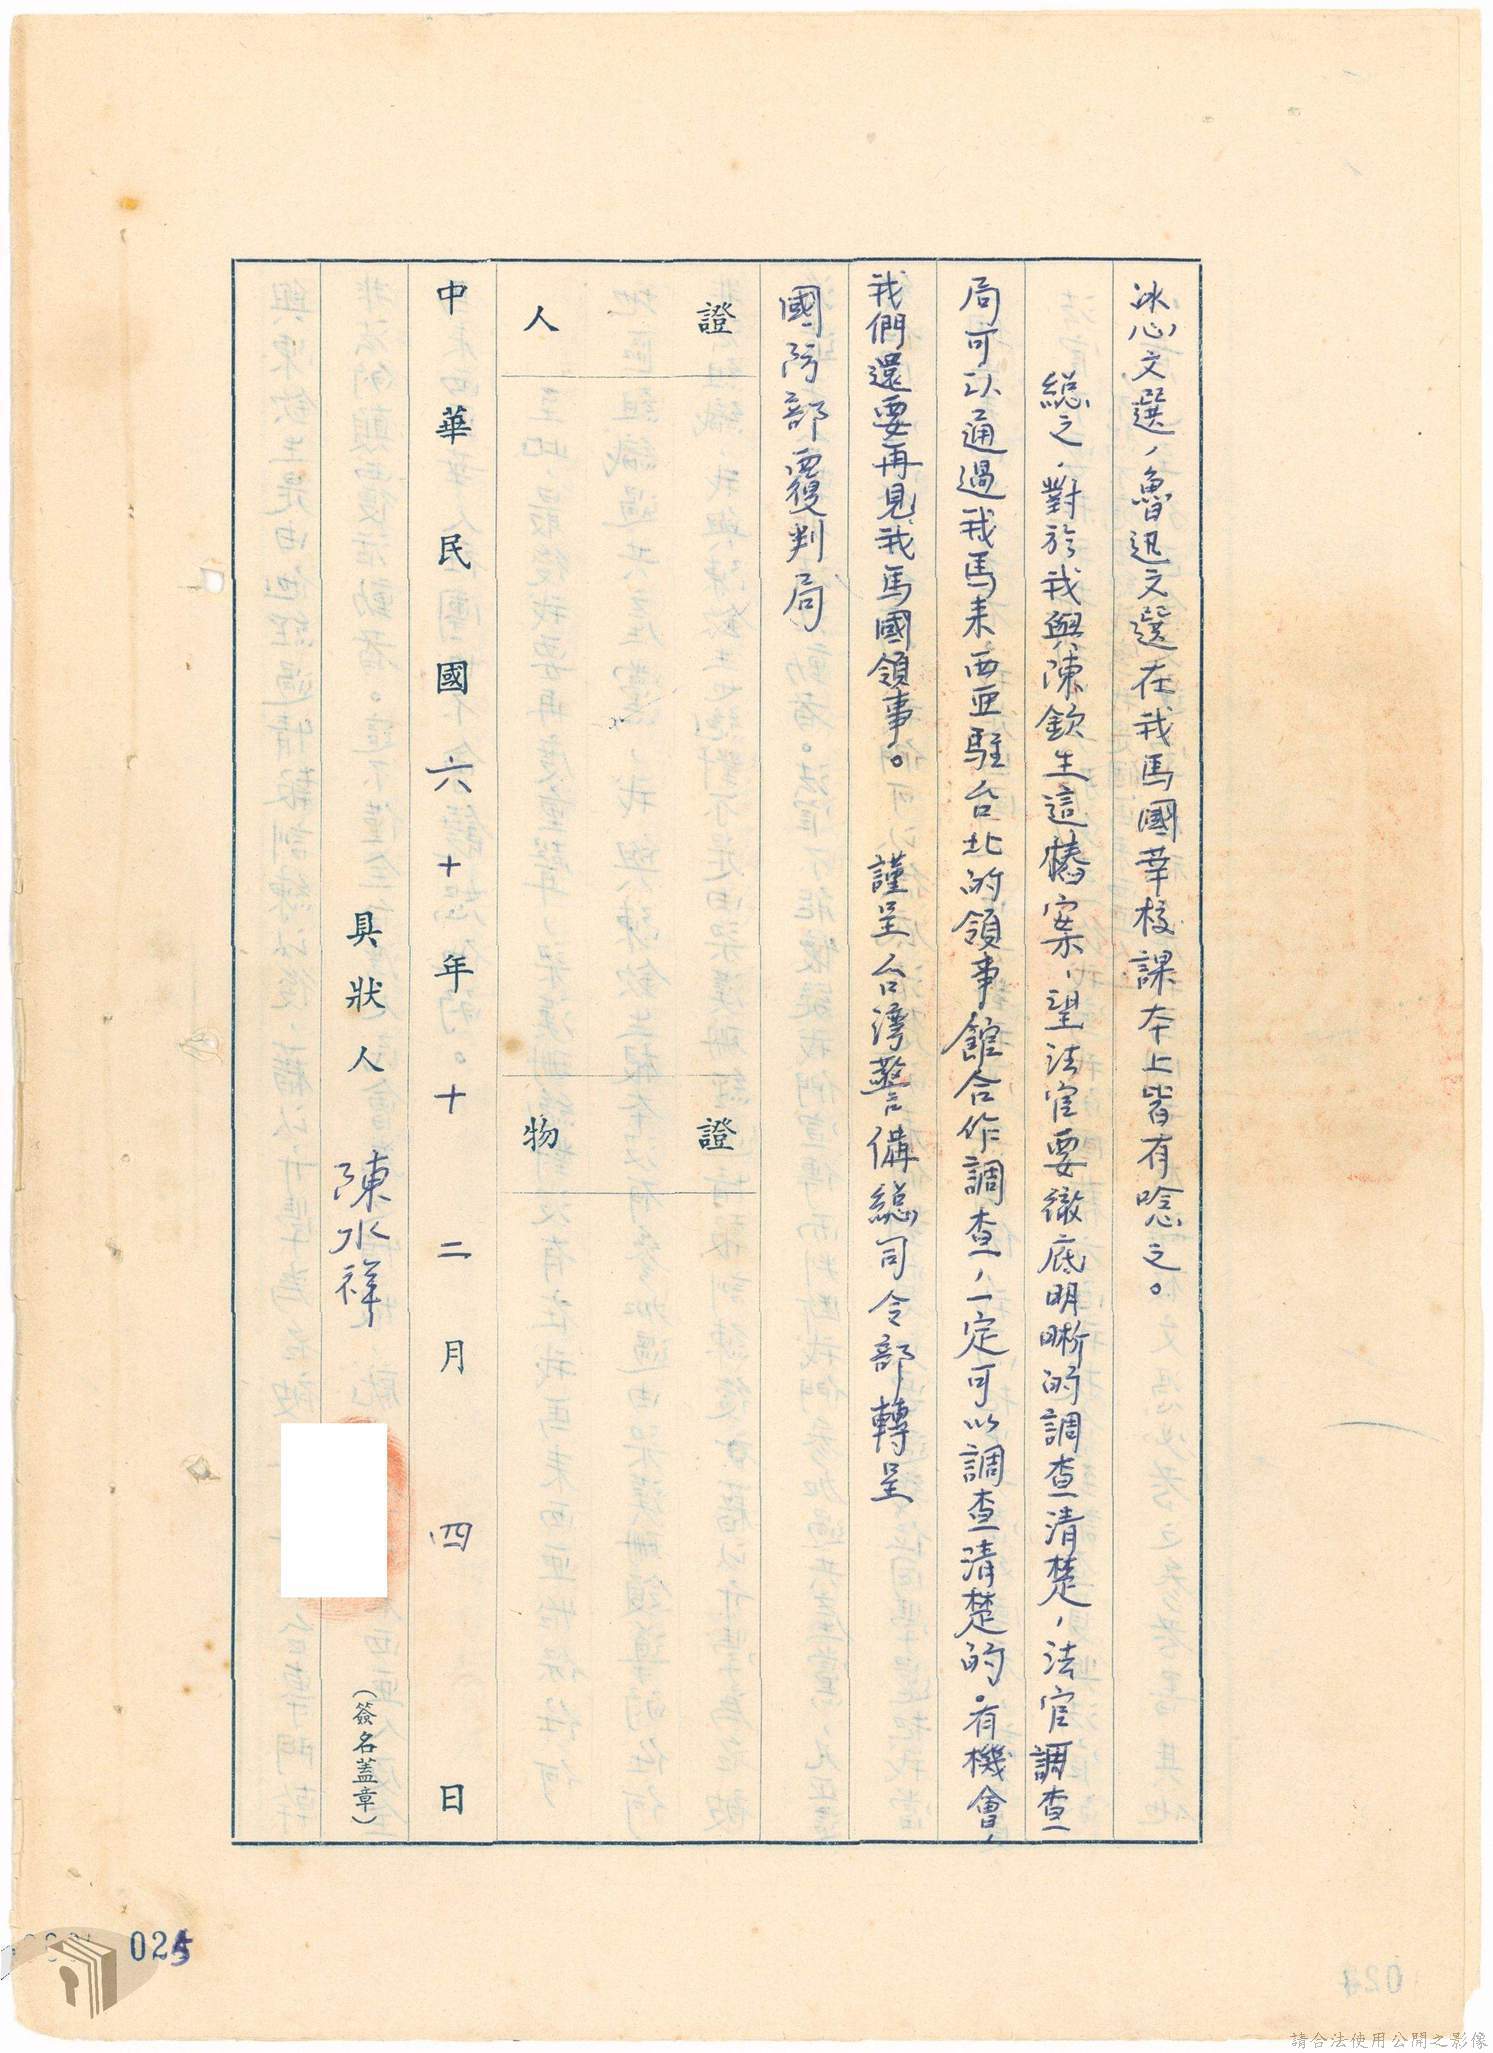 冰心文選，魯迅文選在我馬國華校課本上皆有唸之。
總之，對於我與陳欽生這樁案，望法官要徹底明晰的調查清楚，法官調查
局可以通過我馬來西亞駐台北的領事館合作調查，一定可以調查清楚的。有機會，
我們還要再見我馬國領事。　謹呈台湾警備總司令部轉呈
國防部覆判局
證人
證物
中華民國六十年十二月四日
具狀人 陳水祥 （簽名蓋章）
025
請合法使用公開之影像